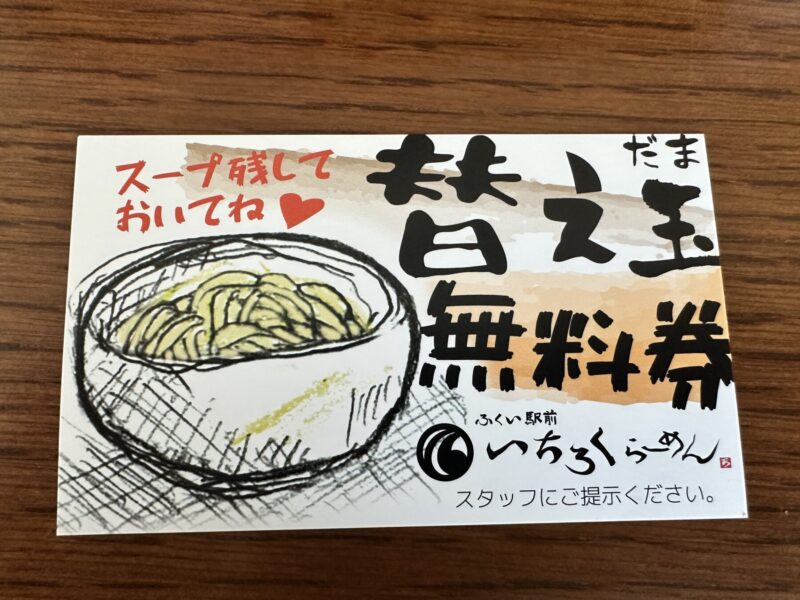 スープ残して
おいてね♥
だま
替え玉
無料券
ふくい駅前
いちろくらーめん
スタッフにご提示ください。